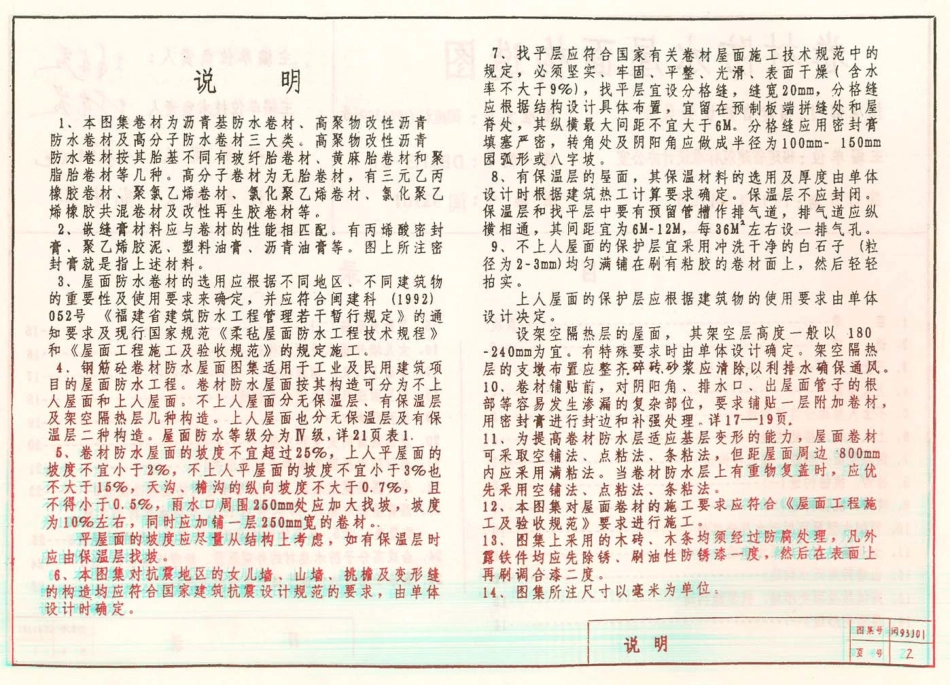 说 明
1、本图集卷材为沥青基防水卷材、高聚物改性沥青
防水卷材及高分子防水卷材三大类。高聚物改性沥青
防水卷材按其胎基不同有玻纤胎卷材、黄麻胎卷材和聚
脂胎卷材等几种。高分子卷材为无胎卷材，有三元乙丙
橡胶卷材、聚氯乙烯卷材、氯化聚乙烯卷材、氯化聚乙
烯橡胶共混卷材及改性再生胶卷材等。
2、嵌缝膏材料应与卷材的性能相匹配。有丙烯酸密封
膏、聚乙烯胶泥、塑料油膏、沥青油膏等。图上所注密
封膏就是指上述材料。
3、屋面防水卷材的选用应根据不同地区、不同建筑物
的重要性及使用要求来确定，并应符合闽建科 (1992)
052号 《福建省建筑防水工程管理若干暂行规定》的通
知要求及现行国家规范《柔毡屋面防水工程技术规程》
和《屋面工程施工及验收规范》的规定施工。
4、钢筋砼卷材防水屋面图集适用于工业及民用建筑项
目的屋面防水工程。卷材防水屋面按其构造可分为不上
人屋面和上人屋面，不上人屋面分无保温层、有保温层
及架空隔热层几种构造。上人屋面也分无保温层及有保
温层二种构造。屋面防水等级分为Ⅳ级、详21页表1.
5、卷材防水屋面的坡度不宜超过25%，上人平屋面的
坡度不宜小于2%，不上人平屋面的坡度不宜小于3%也
不大于15%，天沟、檐沟的纵向坡度不大于0.7%， 且
不得小于0.5%，雨水口周围250mm处应加大找坡，坡度
为10%左右，同时应加铺一层250mm宽的卷材。
平屋面的坡度应尽量从结构上考虑，如有保温层时
应由保温层找坡。
6、本图集对抗震地区的女儿墙、山墙、挑檐及变形缝
的构造均应符合国家建筑抗震设计规范的要求，由单体
设计时确定。
7、找平层应符合国家有关卷材屋面施工技术规范中的
规定，必须坚实、牢固、平整、光滑，表面干燥(含水
率不大于9%)，找平层宜设分格缝，缝宽20mm，分格缝
应根据结构设计具体布置，宜留在预制板端拼缝处和屋
脊处，其纵横最大间距不宜大于6M。分格缝应用密封膏
填塞严密，转角处及阴阳角应做成半径为100mm-150mm
园弧形或八字坡。
8、有保温层的屋面，其保温材料的选用及厚度由单体
设计时根据建筑热工计算要求确定。保温层不应封闭。
保温层和找平层中要有预留管槽作排气道，排气道应纵
横相通，其间距宜为6M-12M，每36M²左右设一排气孔。
9、不上人屋面的保护层宜采用冲洗干净的白石子 (粒
径为2-3mm)均匀满铺在刷有粘胶的卷材面上，然后轻轻
拍实。
上人屋面的保护层应根据建筑物的使用要求由单体
设计决定。
设架空隔热层的屋面， 其架空层高度一般以 180
-240mm为宜。有特殊要求时由单体设计确定。架空隔热
层的支墩布置应整齐，碎砖、砂浆应清除，以利排水确保通风。
10、卷材铺贴前，对阴阳角、排水口、出屋面管子的根
部等容易发生渗漏的复杂部位，要求铺贴一层附加卷材，
用密封膏进行封边和补强处理。详17—19页。
11、为提高卷材防水层适应基层变形的能力，屋面卷材
可采取空铺法、点粘法、条粘法，但距屋面周边 800mm
内应采用满粘法。当卷材防水层上有重物复盖时，应优
先采用空铺法、点粘法、条粘法。
12、本图集对屋面卷材的施工要求应符合《屋面工程施
工及验收规范》要求进行施工。
13、图集上采用的木砖、木条均须经过防腐处理，凡外
露铁件均应先除锈、刷油性防锈漆一度，然后在表面上
再刷调合漆二度。
14、图集所注尺寸以毫米为单位。
说 明
图集号 闽93J01
页 号 2